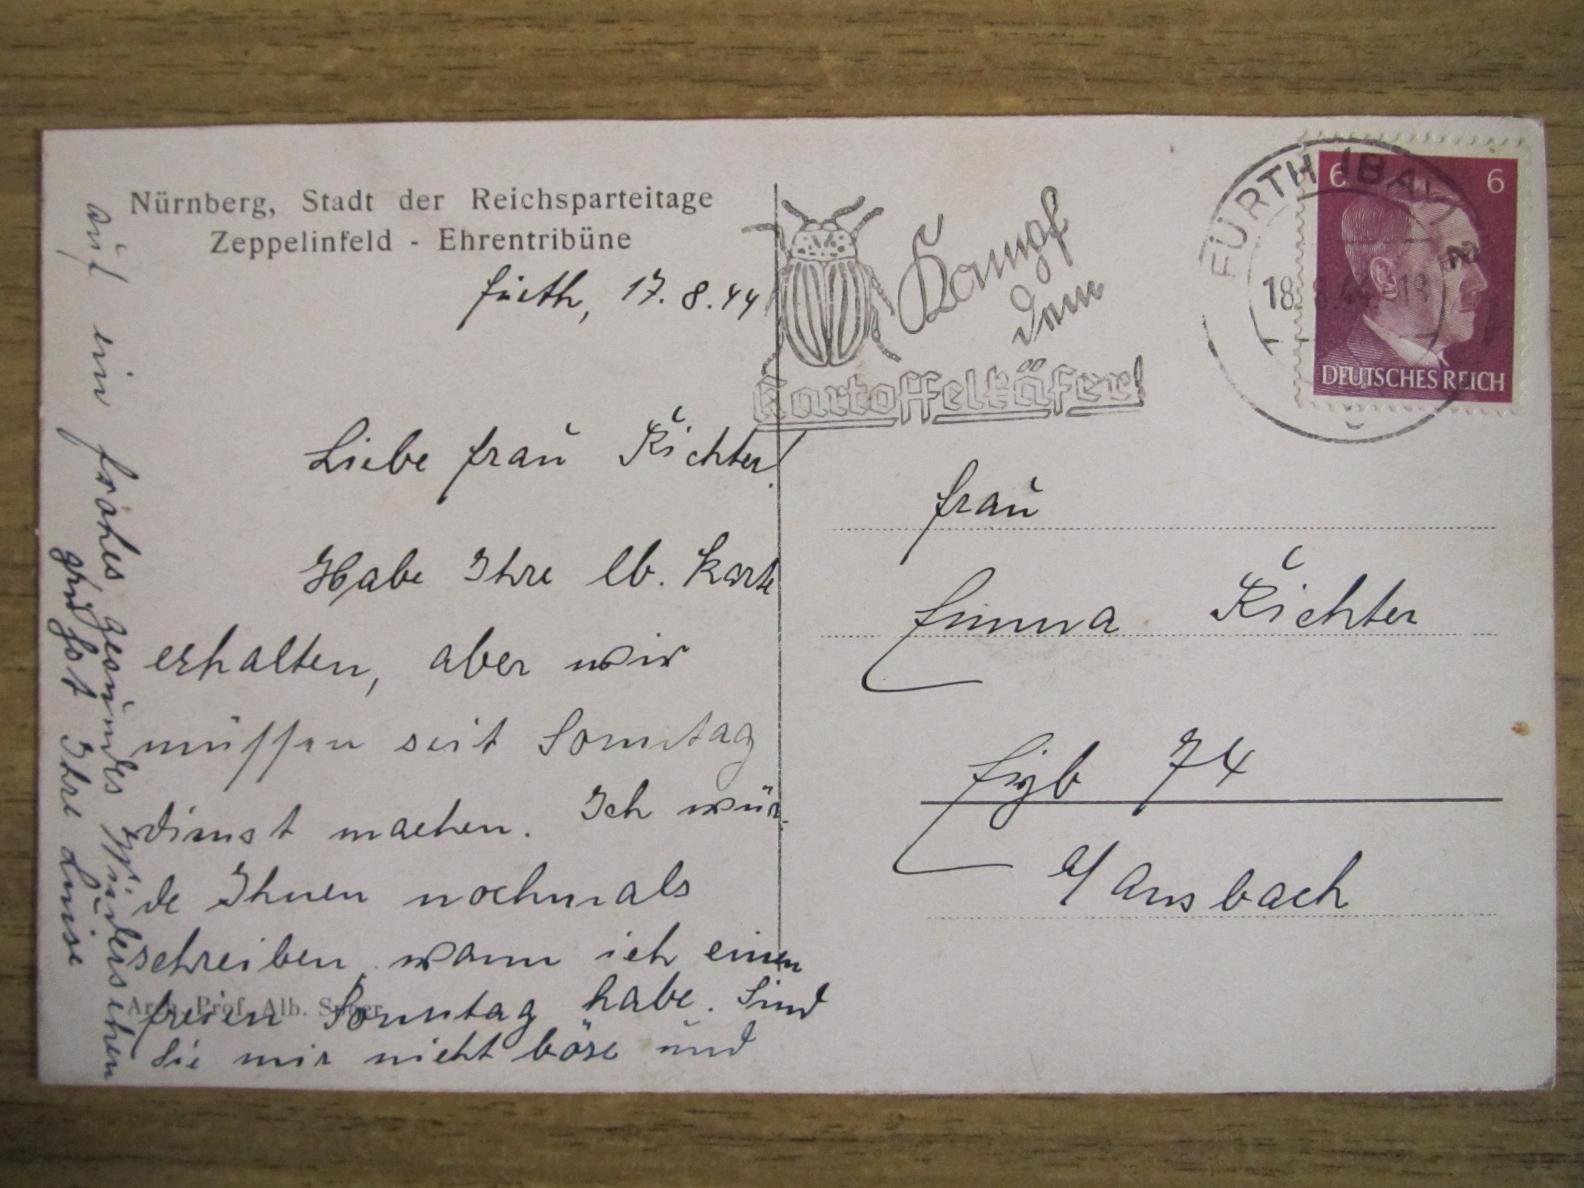 Nürnberg, Stadt der Reichsparteitage
Zeppelinfeld - Ehrentribüne
Fürth, 17.8.44
Liebe Frau Richter!
Habe Ihre lb. Karte
erhalten, aber wir
müssen seit Sonntag
Dienst machen. Ich wür-
de Ihnen nochmals
schreiben wann ich einen
freien Sonntag habe. Sind
Sie mir nicht böse und
auf ein frohes, gesundes Wiedersehen
grüßt Ihre Luise
Arch. Prof. Alb. Speer
Kampf
dem
Kartoffelkäfer!
FÜRTH (BAY)
18.8.44. 19
6 6
DEUTSCHES REICH
Frau
Emma Richter
Eyb 74
b/ Ansbach